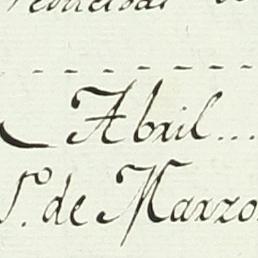 Abril...
1º. de Marzo